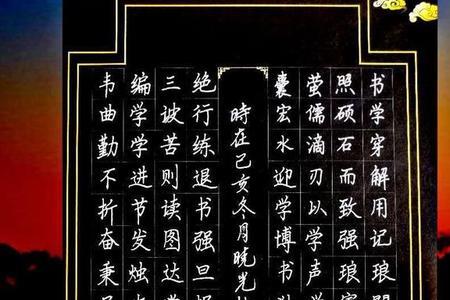 书学穿解用记琅
照硕石而致强琅
萤儒滴刃以学声
囊宏水迎学博书
時在己亥冬月晓光
绝行练退书强旦
三诐苦则读图达
编学学进节发烛
韦曲勤不折奋秉